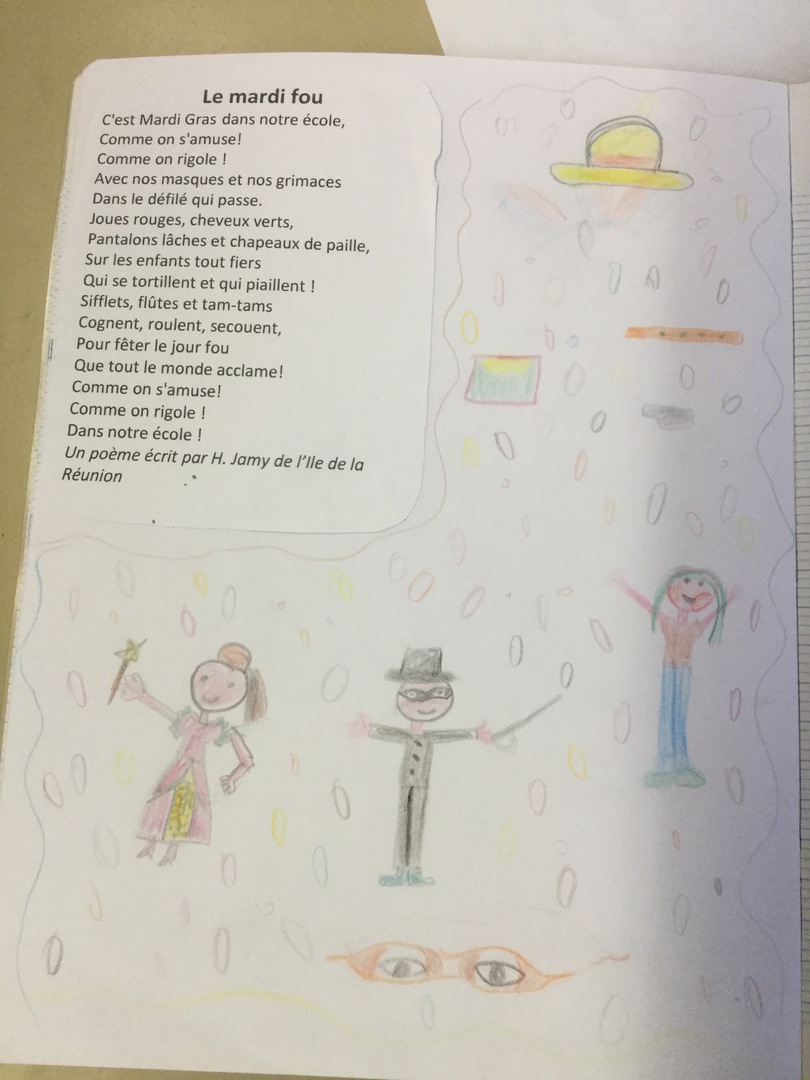 Le mardi fou
C'est Mardi Gras dans notre école,
Comme on s'amuse!
Comme on rigole !
Avec nos masques et nos grimaces
Dans le défilé qui passe.
Joues rouges, cheveux verts,
Pantalons lâches et chapeaux de paille,
Sur les enfants tout fiers
Qui se tortillent et qui piaillent !
Sifflets, flûtes et tam-tams
Cognent, roulent, secouent,
Pour fêter le jour fou
Que tout le monde acclame!
Comme on s'amuse!
Comme on rigole !
Dans notre école !
Un poème écrit par H. Jamy de l'Ile de la
Réunion